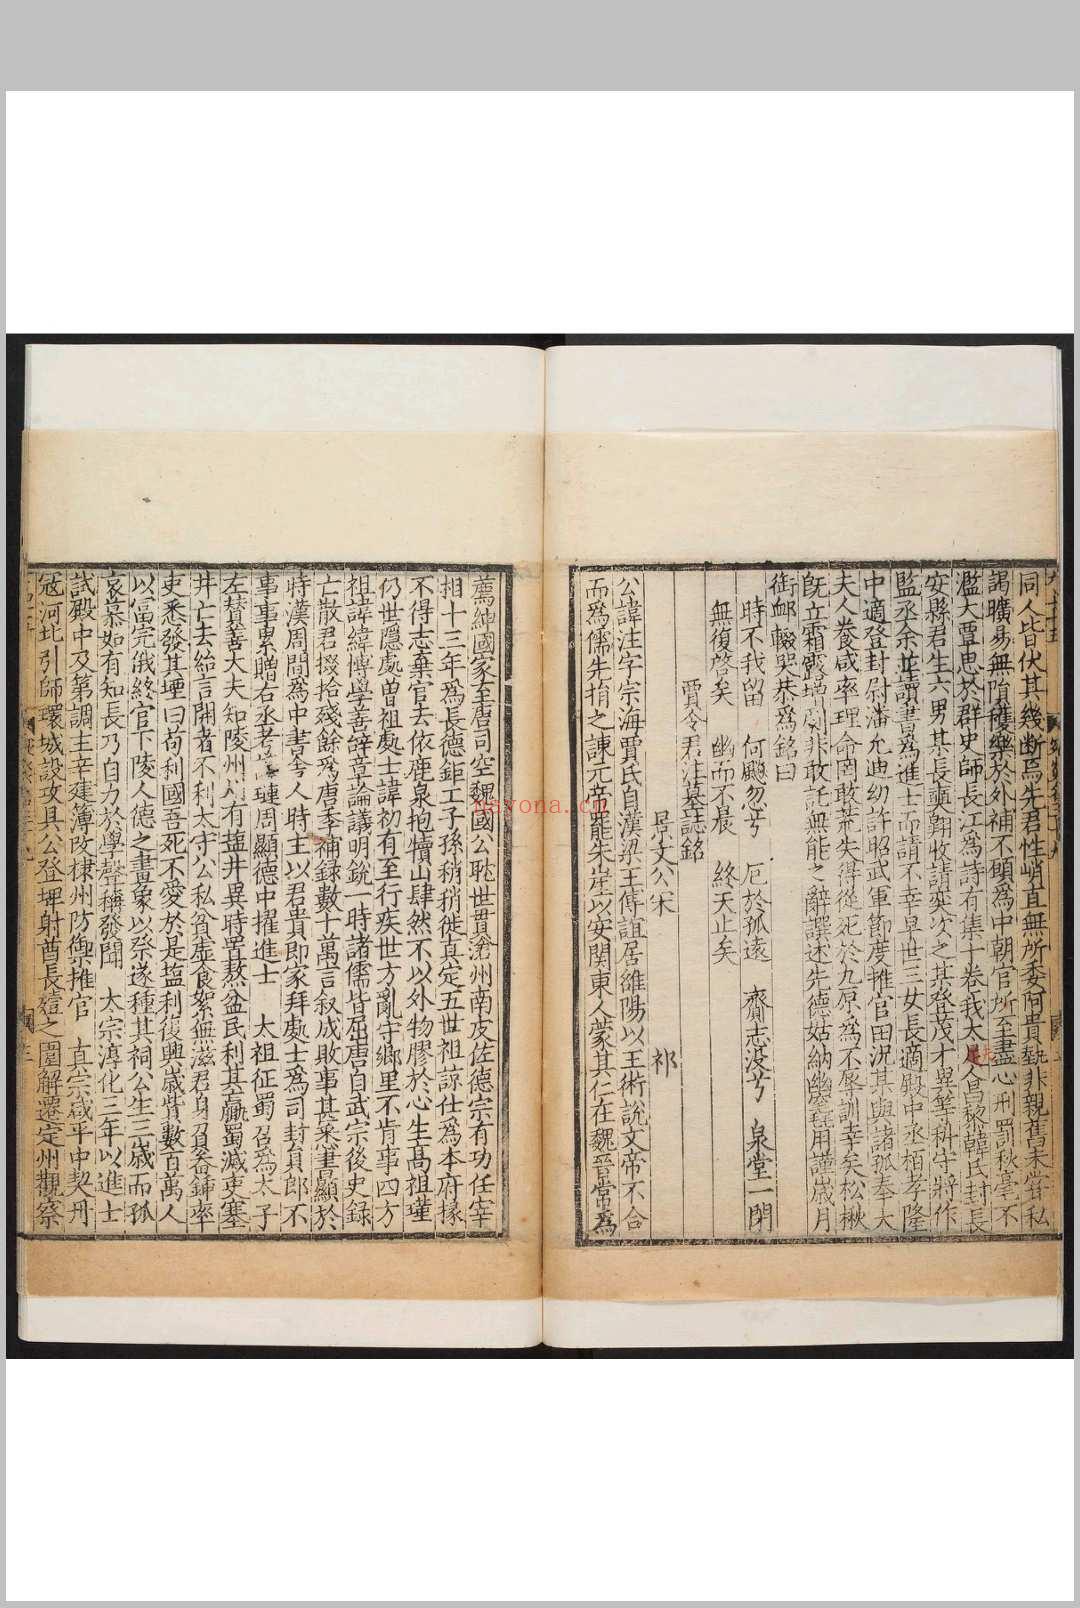 同人皆伏其幾斷焉先君性峭直無所委阿貴埶非親舊未嘗私
謁曠易無隋穫樂於外補不願爲中朝官所至盡心刑罰秋毫不
濫大覃思於群史師長江爲詩有集十卷我大人昌黎韓氏封長
安縣君生六男其長
監丞余並讀書爲進士而請不幸早世三女長適殿中丞栢孝隆
中適登封尉潘允迪幼許昭武軍節度推官田況其與諸孤奉大
夫人養咸率理命罔敢荒失得從死於九原爲不辱訓幸矣松楸
旣立霜露增剛非敢託無能之辭譔述先德姑納幽窀用謹歲月
銜血輟哭恭爲銘曰
時不我留 何颷忽兮 厄於孤遠 齎志没兮 泉堂一閑
無復啓矣 幽而不晨 終天止矣
賈令君注墓誌銘
景文公宋 祁
公諱注字宗海賈氏自漢梁王傅誼居雒陽以王術說文帝不合
而爲儒先捐之諫元帝罷朱崖以安関東人蒙其仁在魏晉常爲
薦紳國家至唐司空魏國公耽世貫滄州南皮佐德宗有功任宰
相十三年爲長德鉅工子孫稍稍徙真定五世祖諒仕爲本府掾
不得志棄官去依鹿泉抱犢山肆然不以外物膠於心生高祖瑾
仍世隱處曽祖處士諱初有至行疾世方亂守鄉里不肯事四方
祖諱緯博學善辭章論議明銳一時諸儒皆屈唐自武宗後史録
亡散君掇拾殘餘爲唐季補録數十萬言叙成敗事甚悉書顯於
時漢周間爲中書舎人時主以君貴即家拜處士爲司封貟郎不
事事累贈右丞考諱璉周顯德中擢進士 太祖征蜀召爲太子
左賛善大夫知陵州州有塩井異時置熬盆民利其贏蜀滅吏塞
井亡去紿言開者不利太守公私貧虛食絮無滋君身刀畚鍤率
吏悉發其堙曰苟利國吾死不愛於是塩利復興歲貲數百萬人
以富完俄終官下陵人德之畫象以祭遂種其祠公生三歲而孤
哀慕如有知長乃自力於學聲稱發聞 太宗淳化三年以進士
試殿中及第調主辛建簿改棣州防禦推官 真宗咸平中契丹
宼河北引師環城設攻具公登埤射酋長殪之圍解遷定州觀察